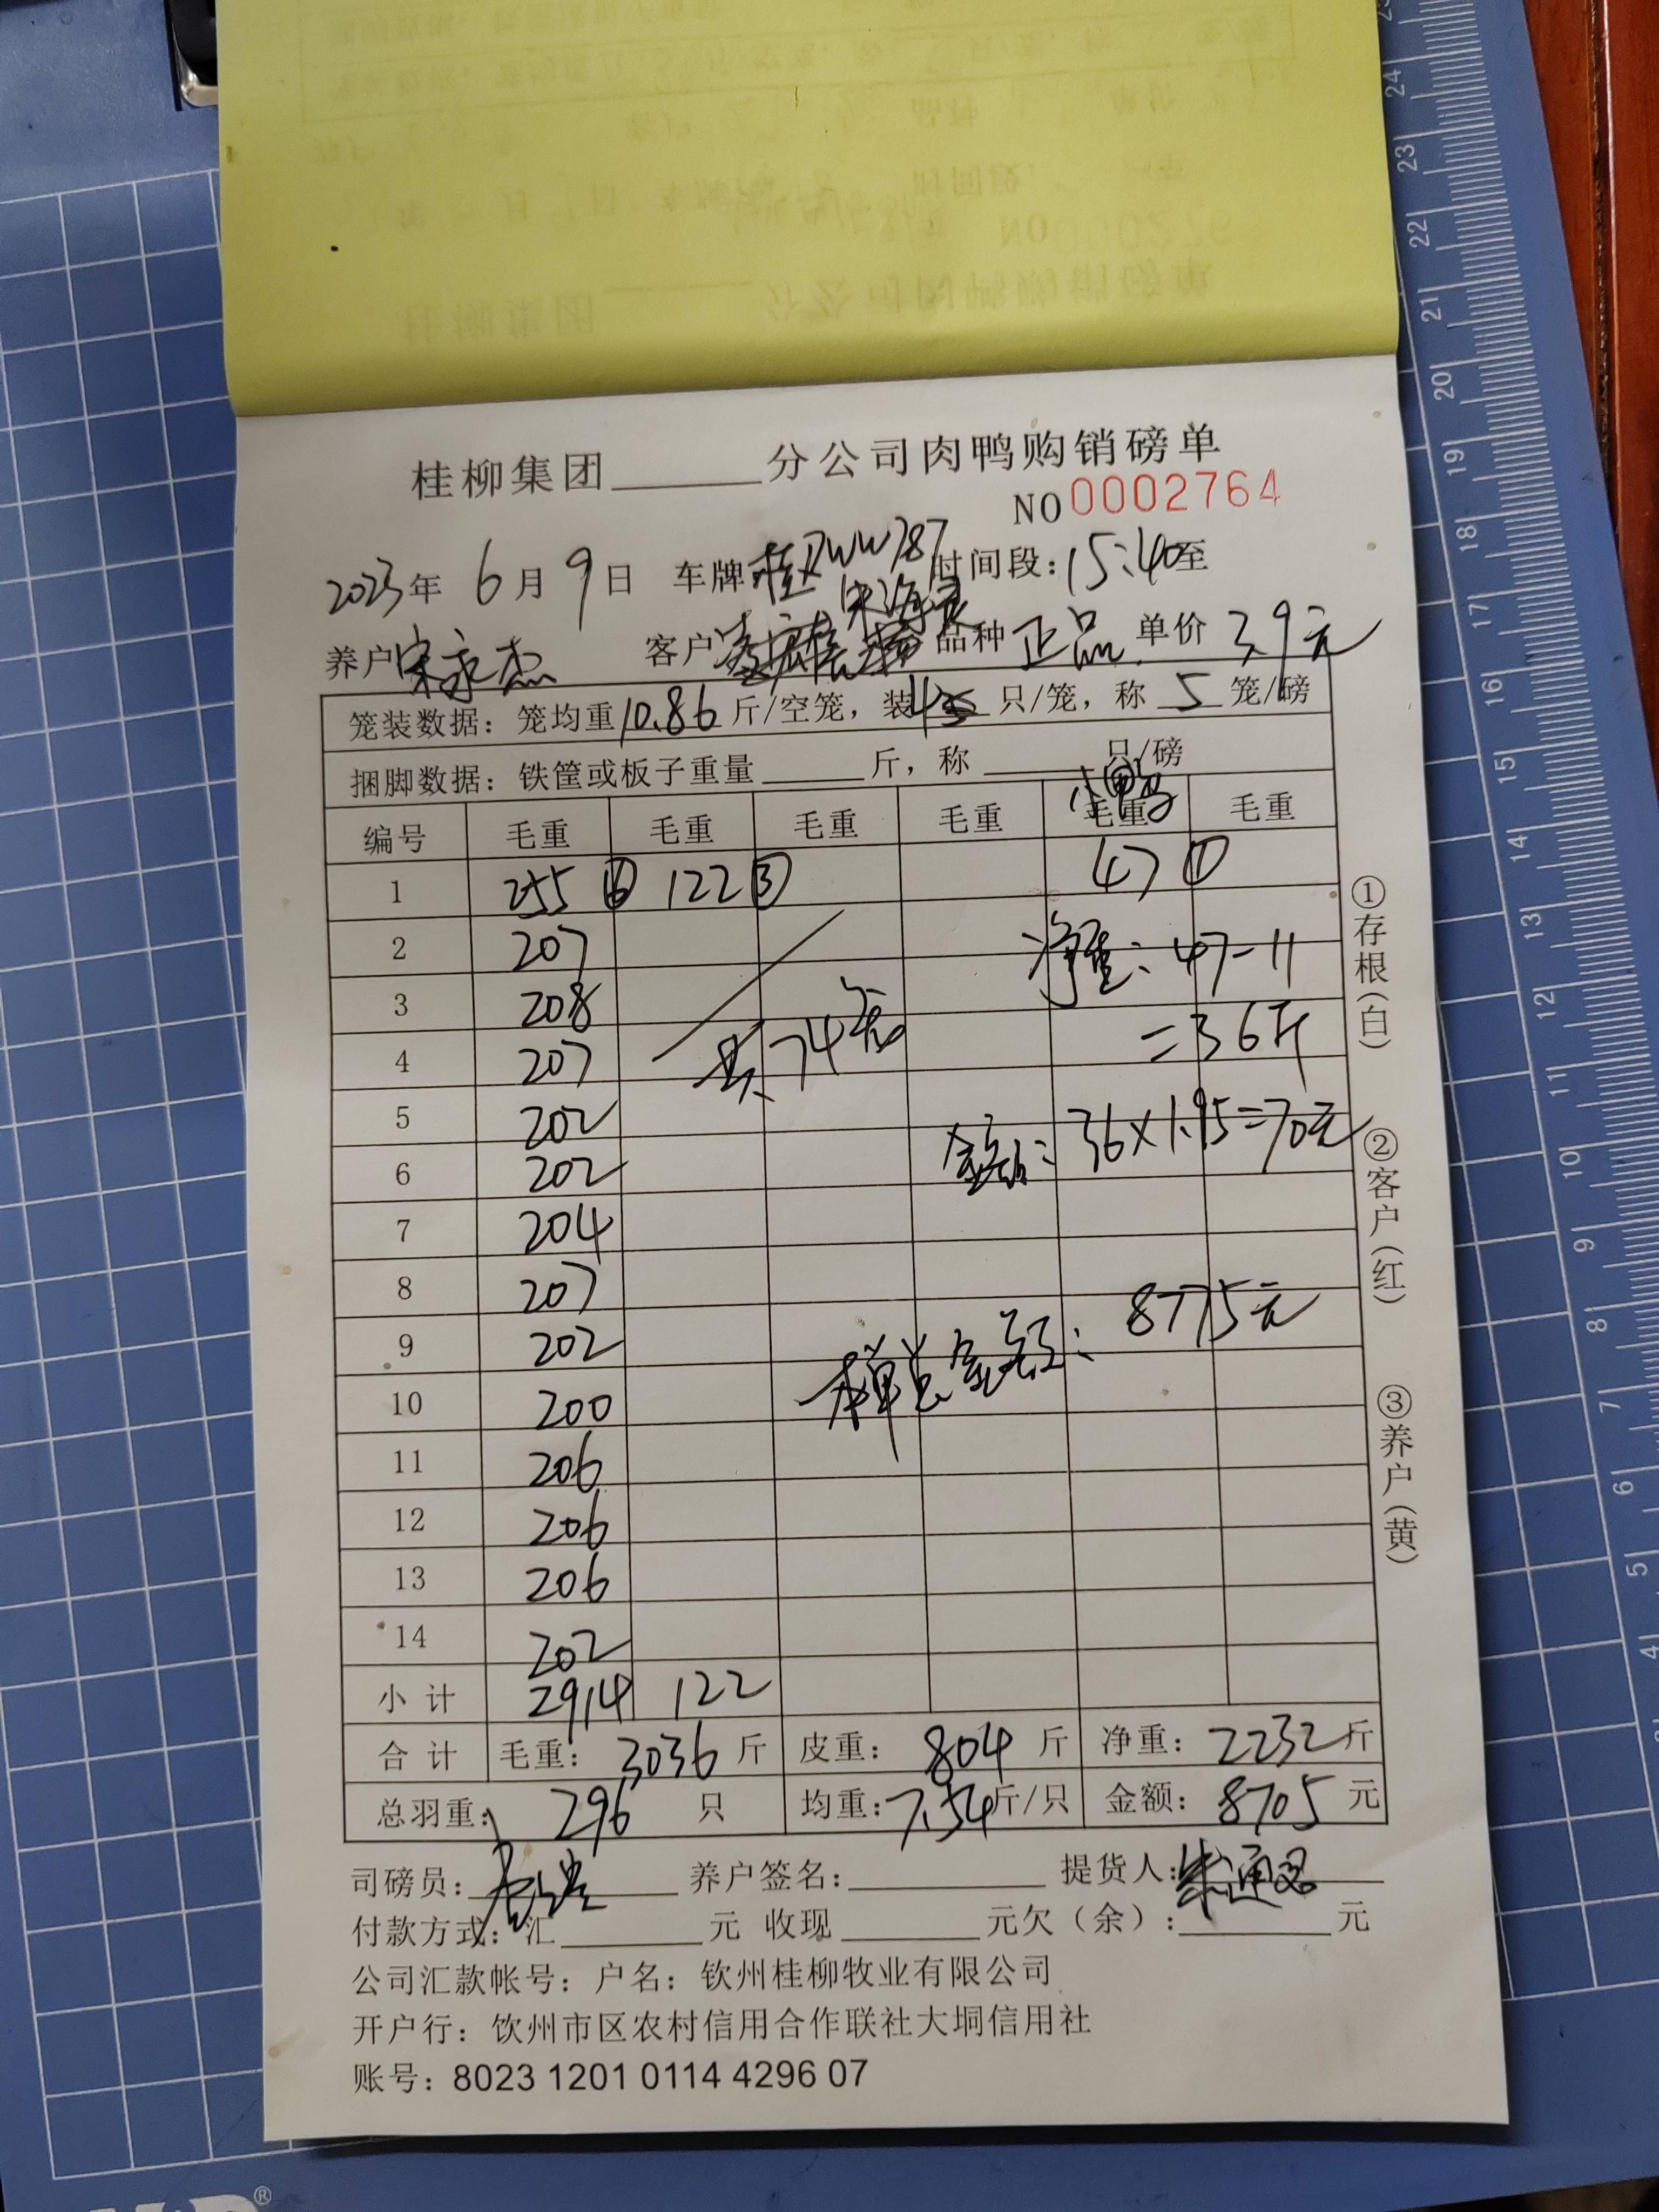 桂柳集团______分公司肉鸭购销磅单
NO 0002764
2023年 6月 9日 车牌 桂 WW787 时间段: 15:40至
养户 宋永杰 客户 品种 正品 单价 3.9元
笼装数据: 笼均重 10.86 斤/空笼, 装 4 只/笼, 称 5 笼/磅
捆脚数据: 铁筐或板子重量______斤, 称______只/磅
小鸭
编号 毛重 毛重 毛重 毛重 毛重 毛重
1 255 ⑥ 122 ③ 47 ①
2 207 净重: 47-11
3 208 =36斤
4 207 共74笼
5 202 金额: 36×1.95=70元
6 202
7 204
8 207 8775元
9 202 本单总金额:
10 200
11 206
12 206
13 206
14 202
小计 2914 122
合计 毛重: 3036 斤 皮重: 804 斤 净重: 2232 斤
总羽重: 296 只 均重: 7.54 斤/只 金额: 8705 元
司磅员: 养户签名: 提货人: 朱通恩
付款方式: 汇______元 收现______元欠(余):______元
公司汇款帐号: 户名: 钦州桂柳牧业有限公司
开户行: 钦州市区农村信用合作联社大垌信用社
账号: 8023 1201 0114 4296 07
①存根(白) ②客户(红) ③养户(黄)
24
23
22
21
20
19
18
17
16
15
14
13
12
11
10
9
8
7
6
5
4